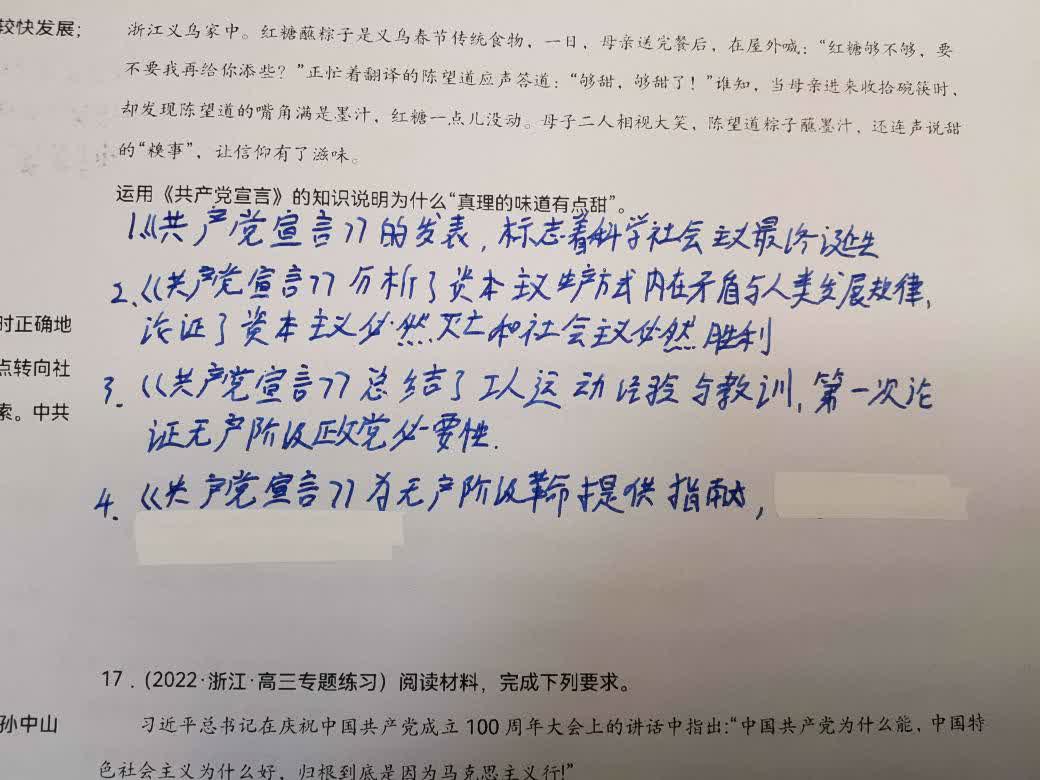 较快发展；
浙江义乌家中。红糖蘸粽子是义乌春节传统食物，一日，母亲送完餐后，在屋外喊：“红糖够不够，要
不要我再给你添些？”正忙着翻译的陈望道应声答道：“够甜，够甜了！”谁知，当母亲进来收拾碗筷时，
却发现陈望道的嘴角满是墨汁，红糖一点儿没动。母子二人相视大笑，陈望道粽子蘸墨汁，还连声说甜
的“糗事”，让信仰有了滋味。
运用《共产党宣言》的知识说明为什么“真理的味道有点甜”。
1.《共产党宣言》的发表，标志着科学社会主义最终诞生
2、《共产党宣言》分析了资本主义生产方式内在矛盾与人类发展规律，
论证了资本主义必然灭亡和社会主义必然胜利
时正确地
点转向社
3.《共产党宣言》总结了工人运动经验与教训，第一次论
索。中共
证无产阶级政党必要性.
4.《共产党宣言》为无产阶级革命提供指南，
17．(2022·浙江·高三专题练习）阅读材料，完成下列要求。
孙中山
习近平总书记在庆祝中国共产党成立 100 周年大会上的讲话中指出：“中国共产党为什么能，中国特
色社会主义为什么好，归根到底是因为马克思主义行!”